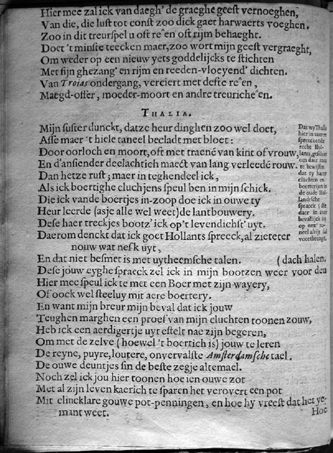 Hier mee zal ick van daegh' de graeghe geest vernoeghen,
Van die, die lust tot const zoo dick gaer harwaerts voeghen.
Zoo in dit treurspel u oft re'en oft rijm behaeght.
Doet 't minste teecken maer, zoo wort mijn geest vergraeght,
Om weder op een nieuw yets goddelijcks te stichten
Met sijn ghezang' en rijm en reeden-vloeyend' dichten.
Van Troias ondergang, verciert met deste re'en,
Maegd-offer, moeder-moort en andre treuriche'en.
THALIA.
Mijn suster dunckt, datze heur dinghen zoo wel doet,
Asse maer 't hiele taneel becladt met bloet:
Door oorloch en moort, oft met traenē van kint of vrouw,
En d'ansiender deelachtich maect van lang verleede rouw.
Dan hetze ruft; maer in teghendeel ick,
Als ick boertighe cluchjens speul ben in mijn schick.
Die ick vande boertjes in-zoop doe ick in ouwe ty
Heur leerde (asje alle wel weet) de lantbouwery.
Dese haer treckjes bootz' ick op't levendichst' uyt.
Daerom denckt dat ick goet Hollants spreeck, al zieteter
nouw wat nesk uyt,
En dat niet besmet is met uytheemsche talen. (dach halen.
Dese jouw eyghe spraeck zel ick in mijn bootzen weer voor den
Hier mee speul ick te met een Boer met zijn wayery,
Of oock wel steeluy mit aere boertery.
En want mijn breur mijn beval dat ick jouw
Teughen marghen een proef van mijn cluchten toonen zouw,
Heb ick een aerdigertje uyt estelt nae zijn begeren,
Om met de zelve (hoewel 't boertich is) jouw te leren
De reyne, puyre, loutere, onvervalste Amsterdamsche tael.
De ouwe deuntjes sin de beste zegje altemael.
Noch zel ick jou hier toonen hoe ien ouwe zor
Met al zijn leven kaerich te sparen het verovert een pot
Mit clincklare gouwe pot-penningen, en hoe hy vreest dat het ye-
mant weet. Hoe